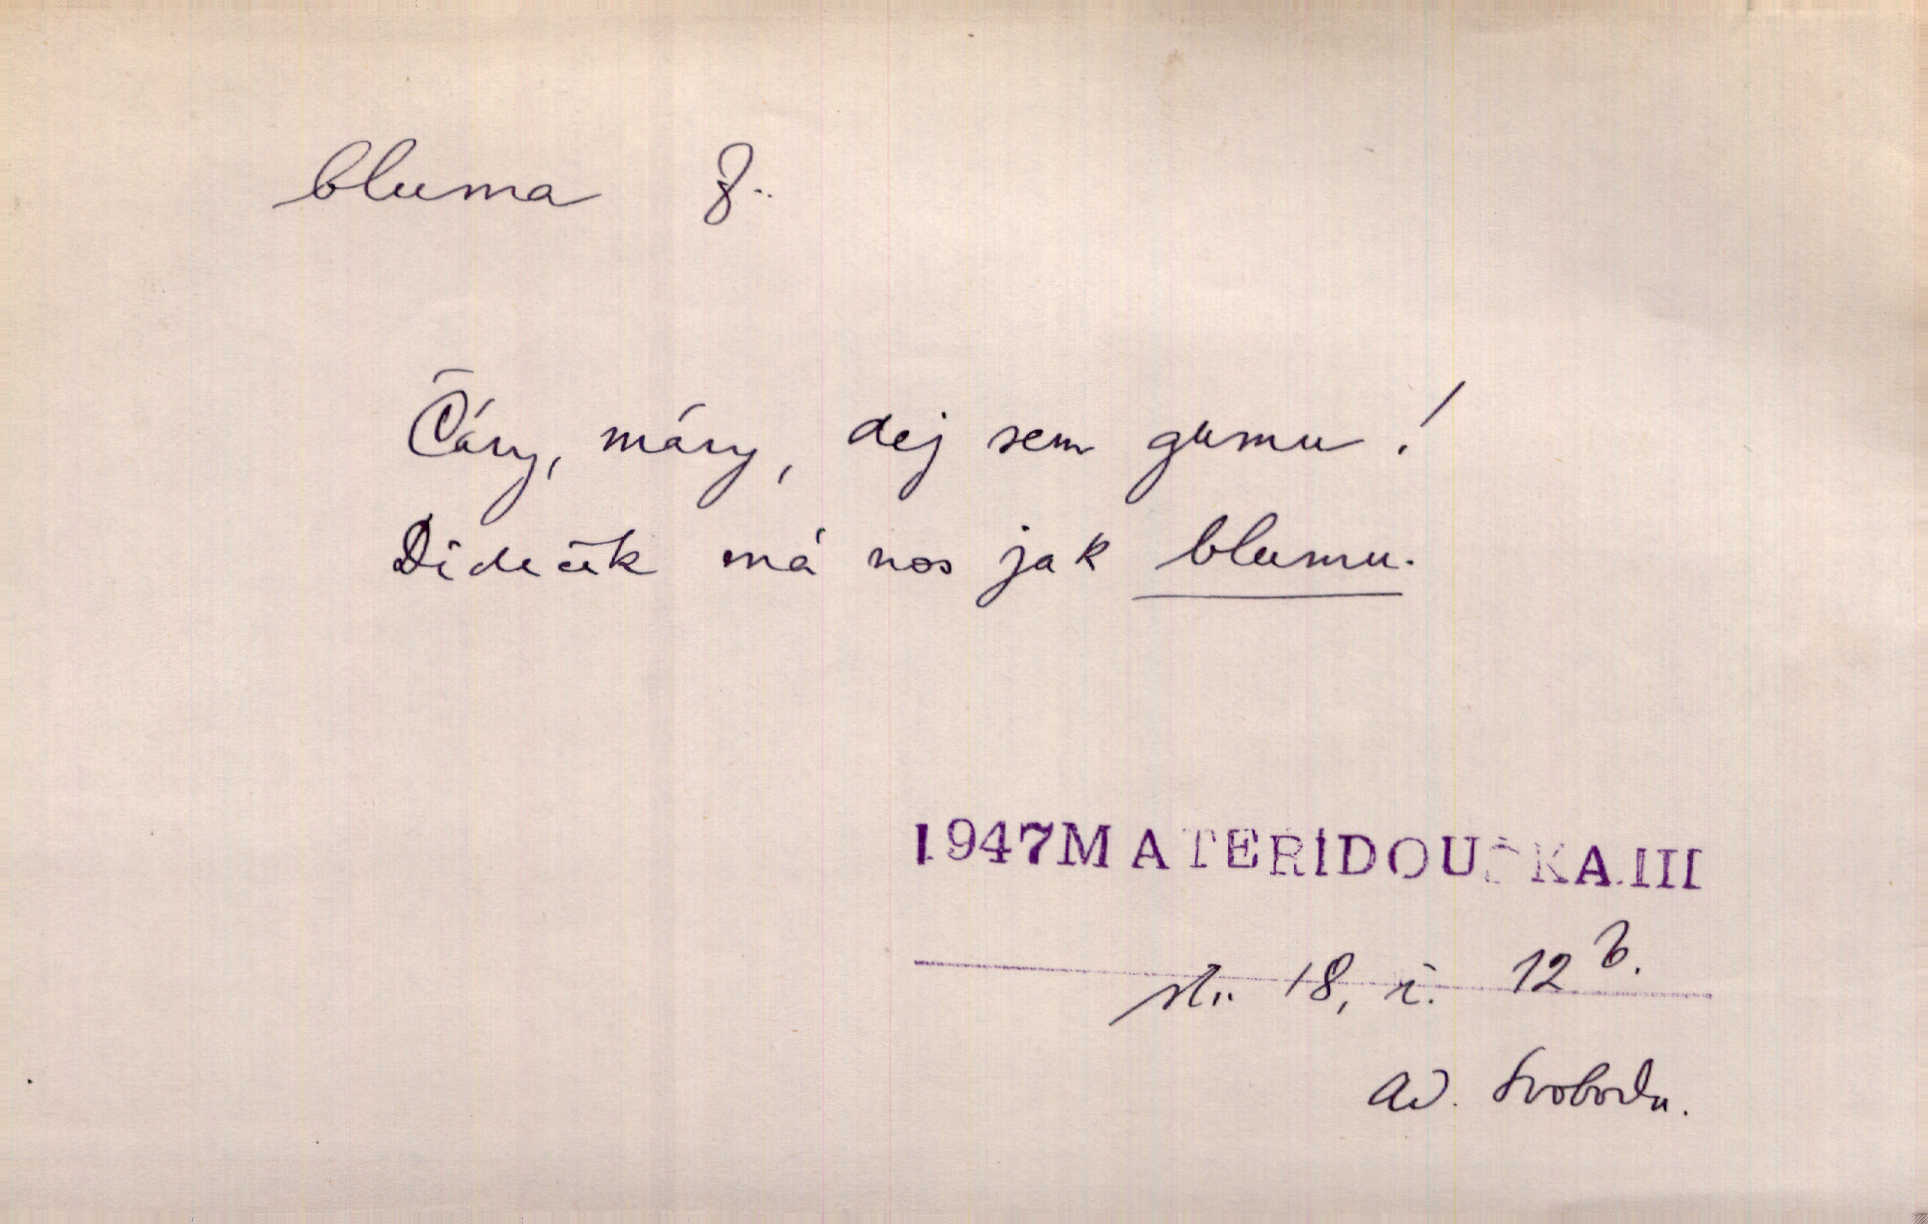 bluma ž.
Čáry, máry, dej sem gumu!
Dědeček má nos jak blumu.
1947 MATEŘÍDOUŠKA III
str. 18, č. 12 b.
Ad. Svoboda.